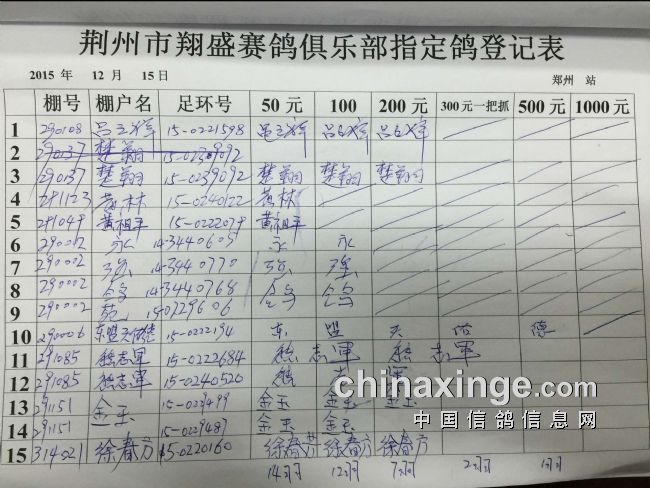 荆州市翔盛赛鸽俱乐部指定鸽登记表
2015 年 12 月 15 日 郑州 站
棚号 棚户名 足环号 50 元 100 200 元 300 元一把抓 500 元 1000 元
1 290108 15-0221598
2 290137 楚翔 15-0239092
3 290137 楚翔 15-0239092 楚翔 楚翔 楚翔
4 281123 黄林 15-0240122 黄林
5 281049 黄祖平 15-0222079 黄祖平
6 290002 永 14-3440605 永 永
7 290002 强 14-3440770 强 强
8 290002 鸽 14-3440768 鸽 鸽
9 290002 苑 15-0729606
10 290006 15-0222194 东 盟 天 佑 德
11 291085 熊志军 15-0222684 熊 志 軍 熊 志 軍
12 291085 熊志军 15-0240520 熊
13 291151 金玉 15-023499 金玉 金玉 金玉
14 291151 15-0229487 金玉 金玉
15 314021 徐春方 15-0220160 徐春方 徐春方 徐春方
14羽 12羽 7羽 2羽 1羽
chinaxinge.com
中国信鸽信息网